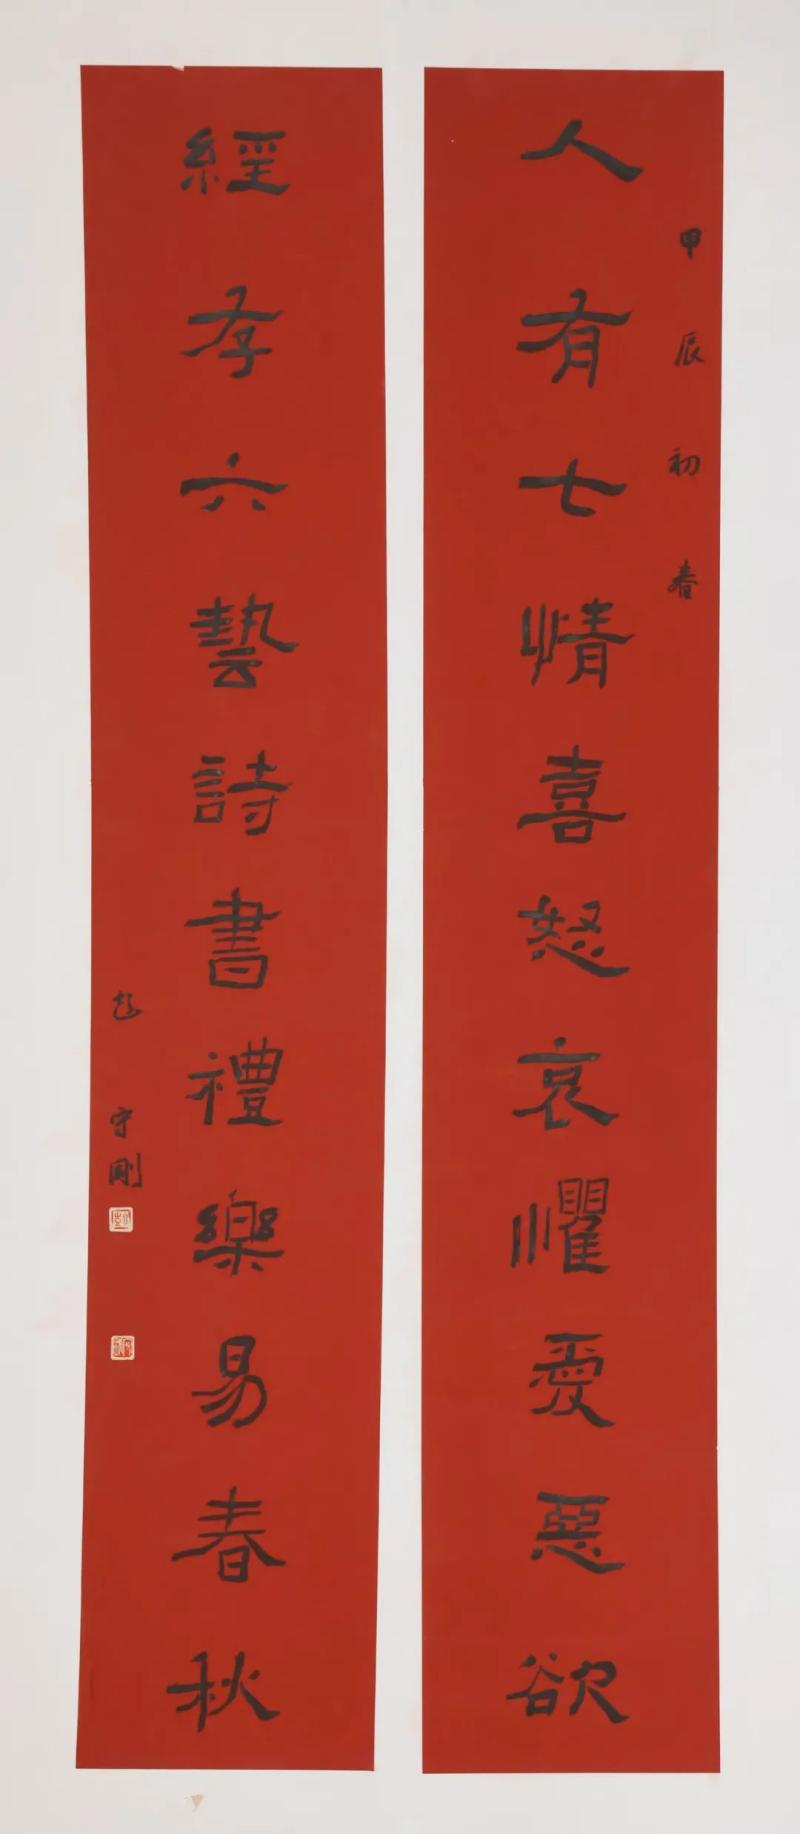 甲辰初春
人有七情喜怒哀懼愛惡欲
經存六藝詩書禮樂易春秋
趙守剛